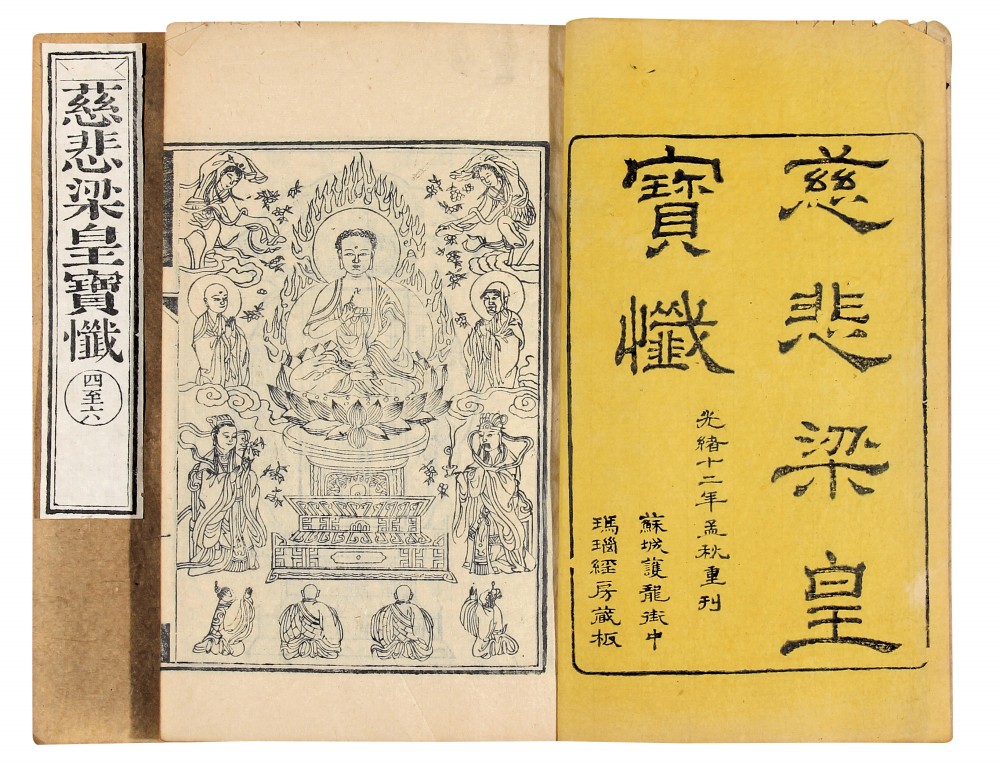 慈悲梁皇
寶懺
光緒十二年孟秋重刊
蘇城護龍街中
瑪瑙經房藏板
卍
慈悲梁皇寶懺
四至六